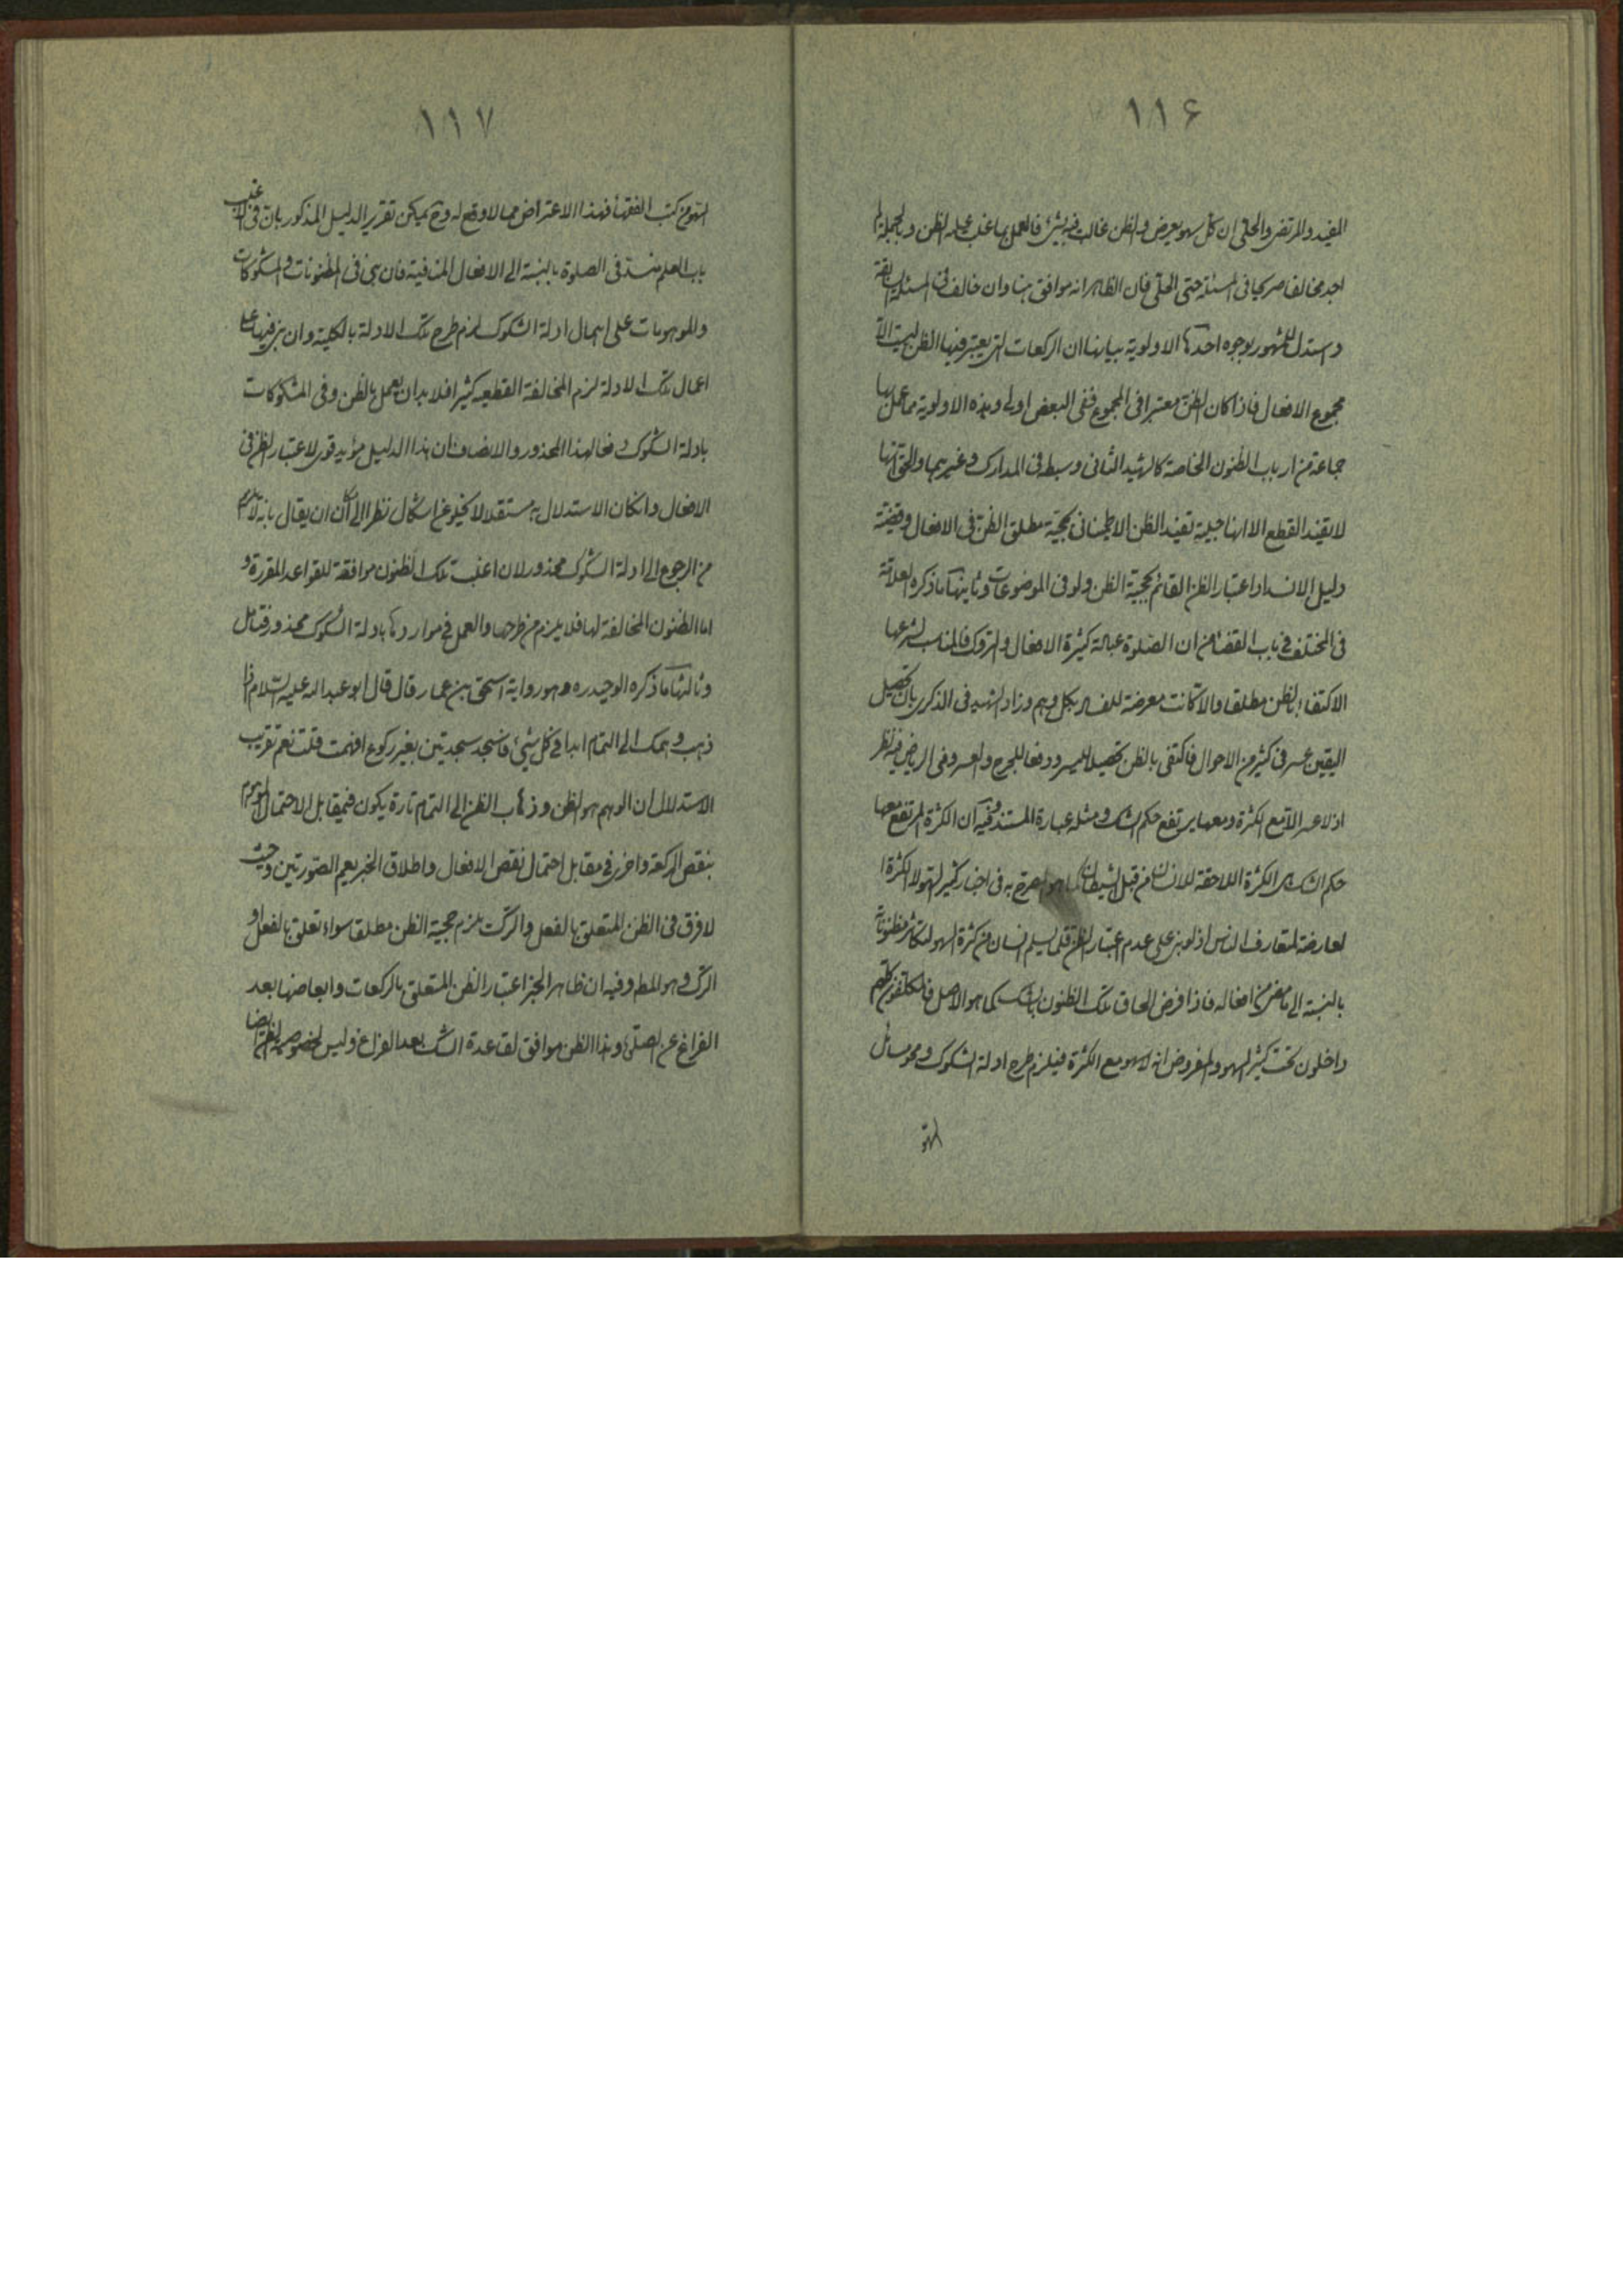 ١١٦
المفيد والمرتضى والحلى ان كل سهو يعرض والظن غالب فيه بشئ فالعمل بما غلب عليه الظن وبالجملة لم
اجد مخالفا صريحا فى المسئلة حتى الحلى فان الظاهر انه موافق هنا وان خالف فى المسئلة السابقة
واستدل للمشهور بوجوه احدها الاولوية بيانها ان الركعات التى يعتبر فيها الظن ليست الا
مجموع الافعال فاذا كان الظن معتبرا فى المجموع ففى البعض اولى وهذه الاولوية مما عمل بها
جماعة من ارباب الظنون الخاصة كالشهيد الثانى وسبطه فى المدارك وغيرهما والحق انها
لا يفيد القطع الا انها جلية تفيد الظن الاطمينانى بحجية مطلق الظن فى الافعال وقضية
دليل الانسداد اعتبار الظن القائم بحجية الظن ولو فى الموضوعات وثانيها ما ذكره العلامة
فى المختلف فى باب القضاء من ان الصلوة عبادة كثيرة الافعال والتروك فالمناسب لشرعها
الاكتفاء بالظن مطلقا والا كانت معرضة للفساد بكل وهم وزاد الشهيد فى الذكرى بان تحصيل
اليقين عسر فى كثير من الاحوال فاكتفى بالظن تحصيلا لليسر ودفعا للحرج والعسر وفى الرياض فيه نظر
اذ لا عسر الا مع الكثرة ومعها يرتفع حكم الشك ومثله عبارة المستند وفيه ان الكثرة المرتفع معها
حكم الشك هى الكثرة اللاحقة للانسان من قبل الشيطان كما هو المصرح به فى اخبار كثير السهو لا الكثرة ا
لعارضة لمتعارف الناس اذ لو بنى على عدم اعتبار الظن قلما يسلم انسان من كثرة السهو لتكاثر مظنوناته
بالنسبة الى ما مضى من افعاله فاذا فرض الحاق تلك الظنون بالشك كما هو الاصل فالمكلفون كلهم
داخلون تحت كثير السهو والمفروض انه لا سهو مع الكثرة فيلزم طرح ادلة الشكوك ومحو مسائل
السهو
١١٧
السهو من كتب الفقهاء فهذا الاعتراض مما لا وقع له وح يمكن تقرير الدليل المذكور بان فى الاغلب
باب العلم منسد فى الصلوة بالنسبة الى الافعال المنفية فان بنى فى المظنونات والمشكوكات
والموهومات على اهمال ادلة الشكوك لزم طرح تلك الادلة بالكلية وان بنى فيها على
اعمال تلك الادلة لزم المخالفة القطعيه كثيرا فلا بد ان يعمل بالظن وفى المشكوكات
بادلة الشكوك دفعا لهذا المحذور والانصاف ان هذا الدليل مؤيد قوى لاعتبار الظن فى
الافعال وانكان الاستدلال به مستقلا لا يخلو عن اشكال نظرا الى امكان ان يقال بانه لا يلزم
من الرجوع الى ادلة الشكوك محذور لان اغلب تلك الظنون موافقة للقواعد المقررة و
اما الظنون المخالفة لها فلا يلزم من طرحها والعمل فى مواردها بادلة الشكوك محذور فتامل
وثالثها ما ذكره الوحيد ره وهو رواية اسحق بن عمار قال قال ابو عبد الله عليه السلام اذا
ذهب وهمك الى التمام ابدا فى كل شئ فاسجد سجدتين بغير ركوع افهمت قلت نعم تقريب
الاستدلال ان الوهم هو الظن وذهاب الظن الى التمام تارة يكون فى مقابل الاحتمال الموهوم
بنقص الركعة واخرى فى مقابل احتمال نقص الافعال واطلاق الخبر يعم الصورتين وحيث
لا فرق فى الظن المتعلق بالفعل والترك يلزم حجية الظن مطلقا سواء تعلق بالفعل او
الترك وهو المط وفيه ان ظاهر الخبر اعتبار الظن المتعلق بالركعات وابعاضها بعد
الفراغ عن الصلوة وهذا الظن موافق لقاعدة الشك بعد الفراغ وليس لخصوصية الظن ايضا